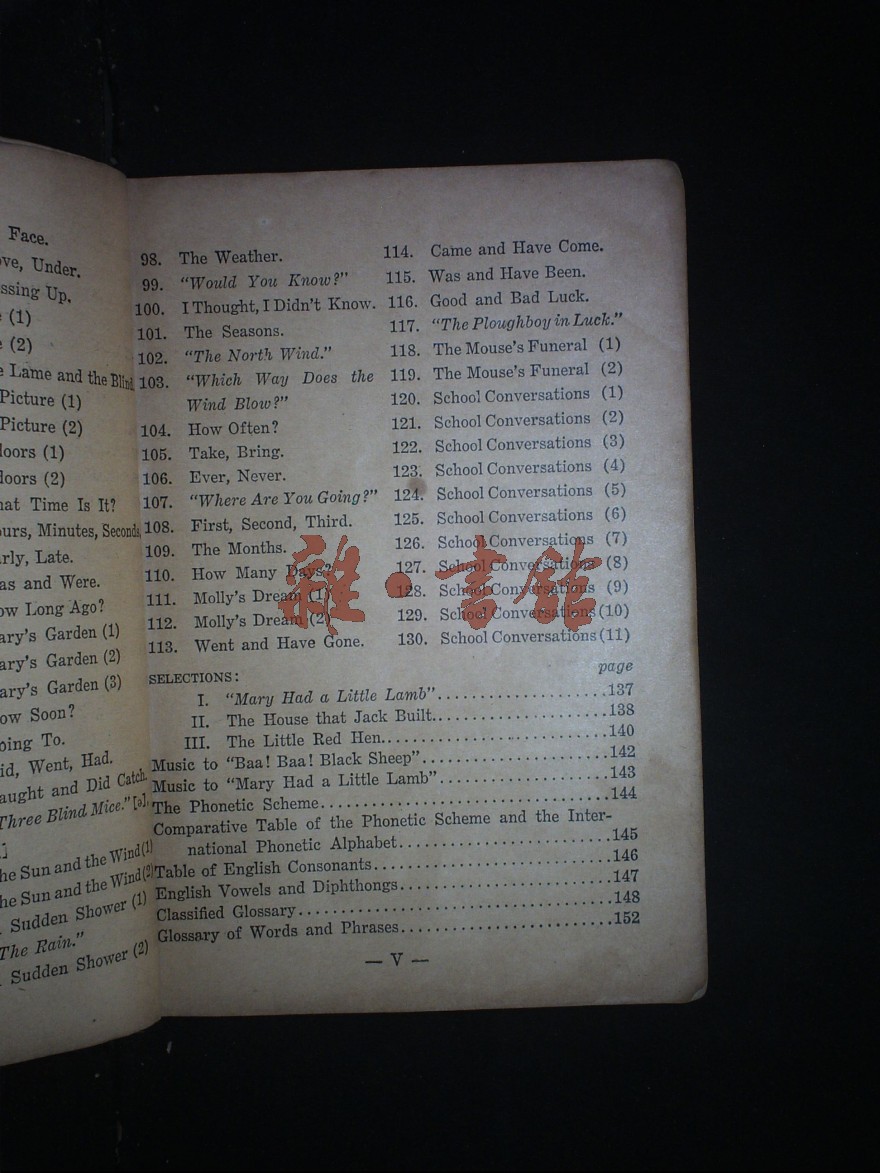 Face.
Under.
Up.
(1)
(2)
Lame and the Blind.
Picture (1)
Picture (2)
(1)
(2)
Time Is It?
Minutes, Seconds.
Late.
and Were.
Long Ago?
Garden (1)
Garden (2)
Garden (3)
Soon?
To.
Went, Had.
and Did Catch.
Three Blind Mice." [ə].
Sun and the Wind (1)
Sun and the Wind (2)
Sudden Shower (1)
The Rain."
Sudden Shower (2)
98. The Weather.
99. "Would You Know?"
100. I Thought, I Didn't Know.
101. The Seasons.
102. "The North Wind."
103. "Which Way Does the
Wind Blow?"
104. How Often?
105. Take, Bring.
106. Ever, Never.
107. "Where Are You Going?"
108. First, Second, Third.
109. The Months.
110. How Many Days?
111. Molly's Dream (1)
112. Molly's Dream (2)
113. Went and Have Gone.
114. Came and Have Come.
115. Was and Have Been.
116. Good and Bad Luck.
117. "The Ploughboy in Luck."
118. The Mouse's Funeral (1)
119. The Mouse's Funeral (2)
120. School Conversations (1)
121. School Conversations (2)
122. School Conversations (3)
123. School Conversations (4)
124. School Conversations (5)
125. School Conversations (6)
126. School Conversations (7)
127. School Conversations (8)
128. School Conversations (9)
129. School Conversations (10)
130. School Conversations (11)
雜·書館
page
SELECTIONS:
I. "Mary Had a Little Lamb".....................137
II. The House that Jack Built.....................138
III. The Little Red Hen...........................140
Music to "Baa! Baa! Black Sheep".......................142
Music to "Mary Had a Little Lamb".....................143
The Phonetic Scheme...................................144
Comparative Table of the Phonetic Scheme and the Inter-
national Phonetic Alphabet..........................145
Table of English Consonants............................146
English Vowels and Diphthongs.........................147
Classified Glossary.....................................148
Glossary of Words and Phrases.........................152
— V —